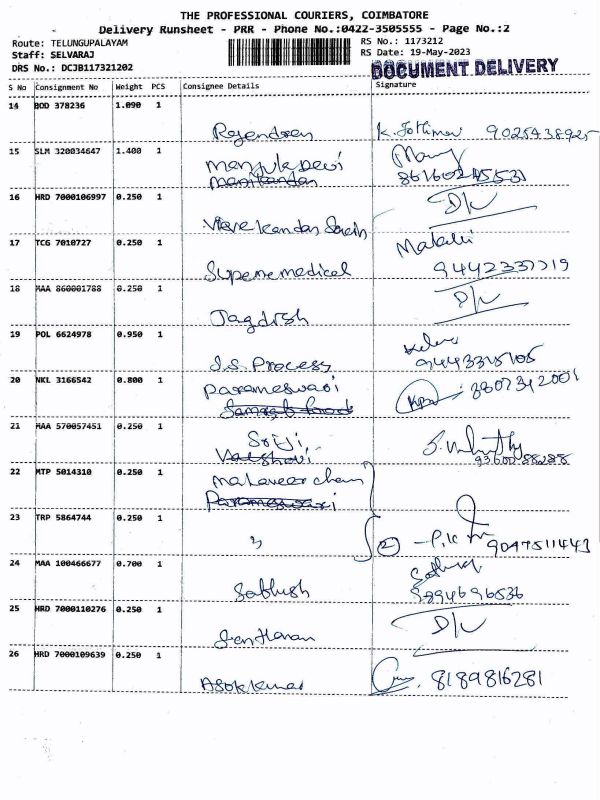 THE PROFESSIONAL COURIERS, COIMBATORE
Delivery Runsheet - PRR - Phone No.:0422-3505555 - Page No.:2
Route: TELUNGUPALAYAM RS No.: 1173212
Staff: SELVARAJ RS Date: 19-May-2023
DRS No.: DCJB117321202 DOCUMENT DELIVERY
S No Consignment No Weight PCS Consignee Details Signature
14 BOD 378236 1.090 1
Rajendren 9025438925
15 SLM 320034647 1.400 1
Manjula Devi
Manikandan
16 HRD 7000106997 0.250 1 D/L
17 TCG 7010727 0.250 1
Supreme medical
18 MAA 860001788 0.250 1 D/L
Jagdish
19 POL 6624978 0.950 1
J.S. Process
20 NKL 3166542 0.800 1
Parameswari
21 MAA 570057451 0.250 1
Sriji
22 MTP 5014310 0.250 1
Mahaveer cham
Parameswari
23 TRP 5864744 0.250 1
2 9047511443
24 MAA 100466677 0.700 1
Sathish 9894696536
25 HRD 7000110276 0.250 1 D/L
26 HRD 7000109639 0.250 1
Asokkumar 8189816281